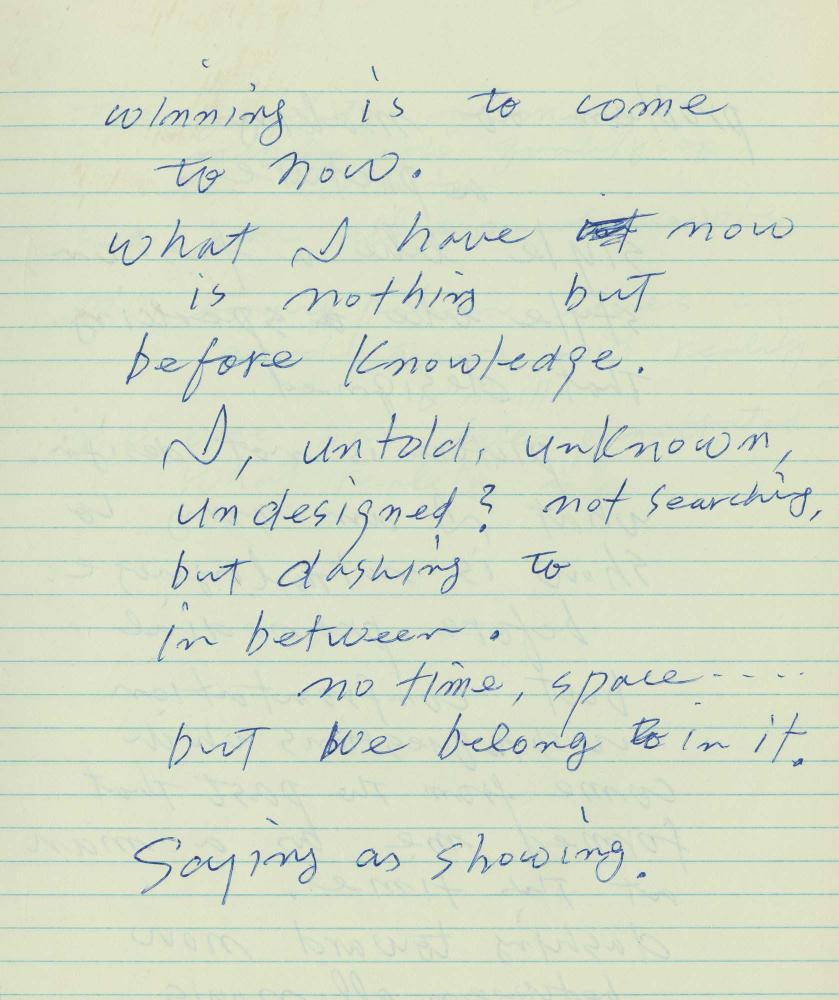 winning is to come
to now.
what I have now
is nothing but
before knowledge.
I, untold, unknown,
undesigned? not searching,
but dashing to
in between.
no time, space-----
but we belong in it.
Saying as showing.